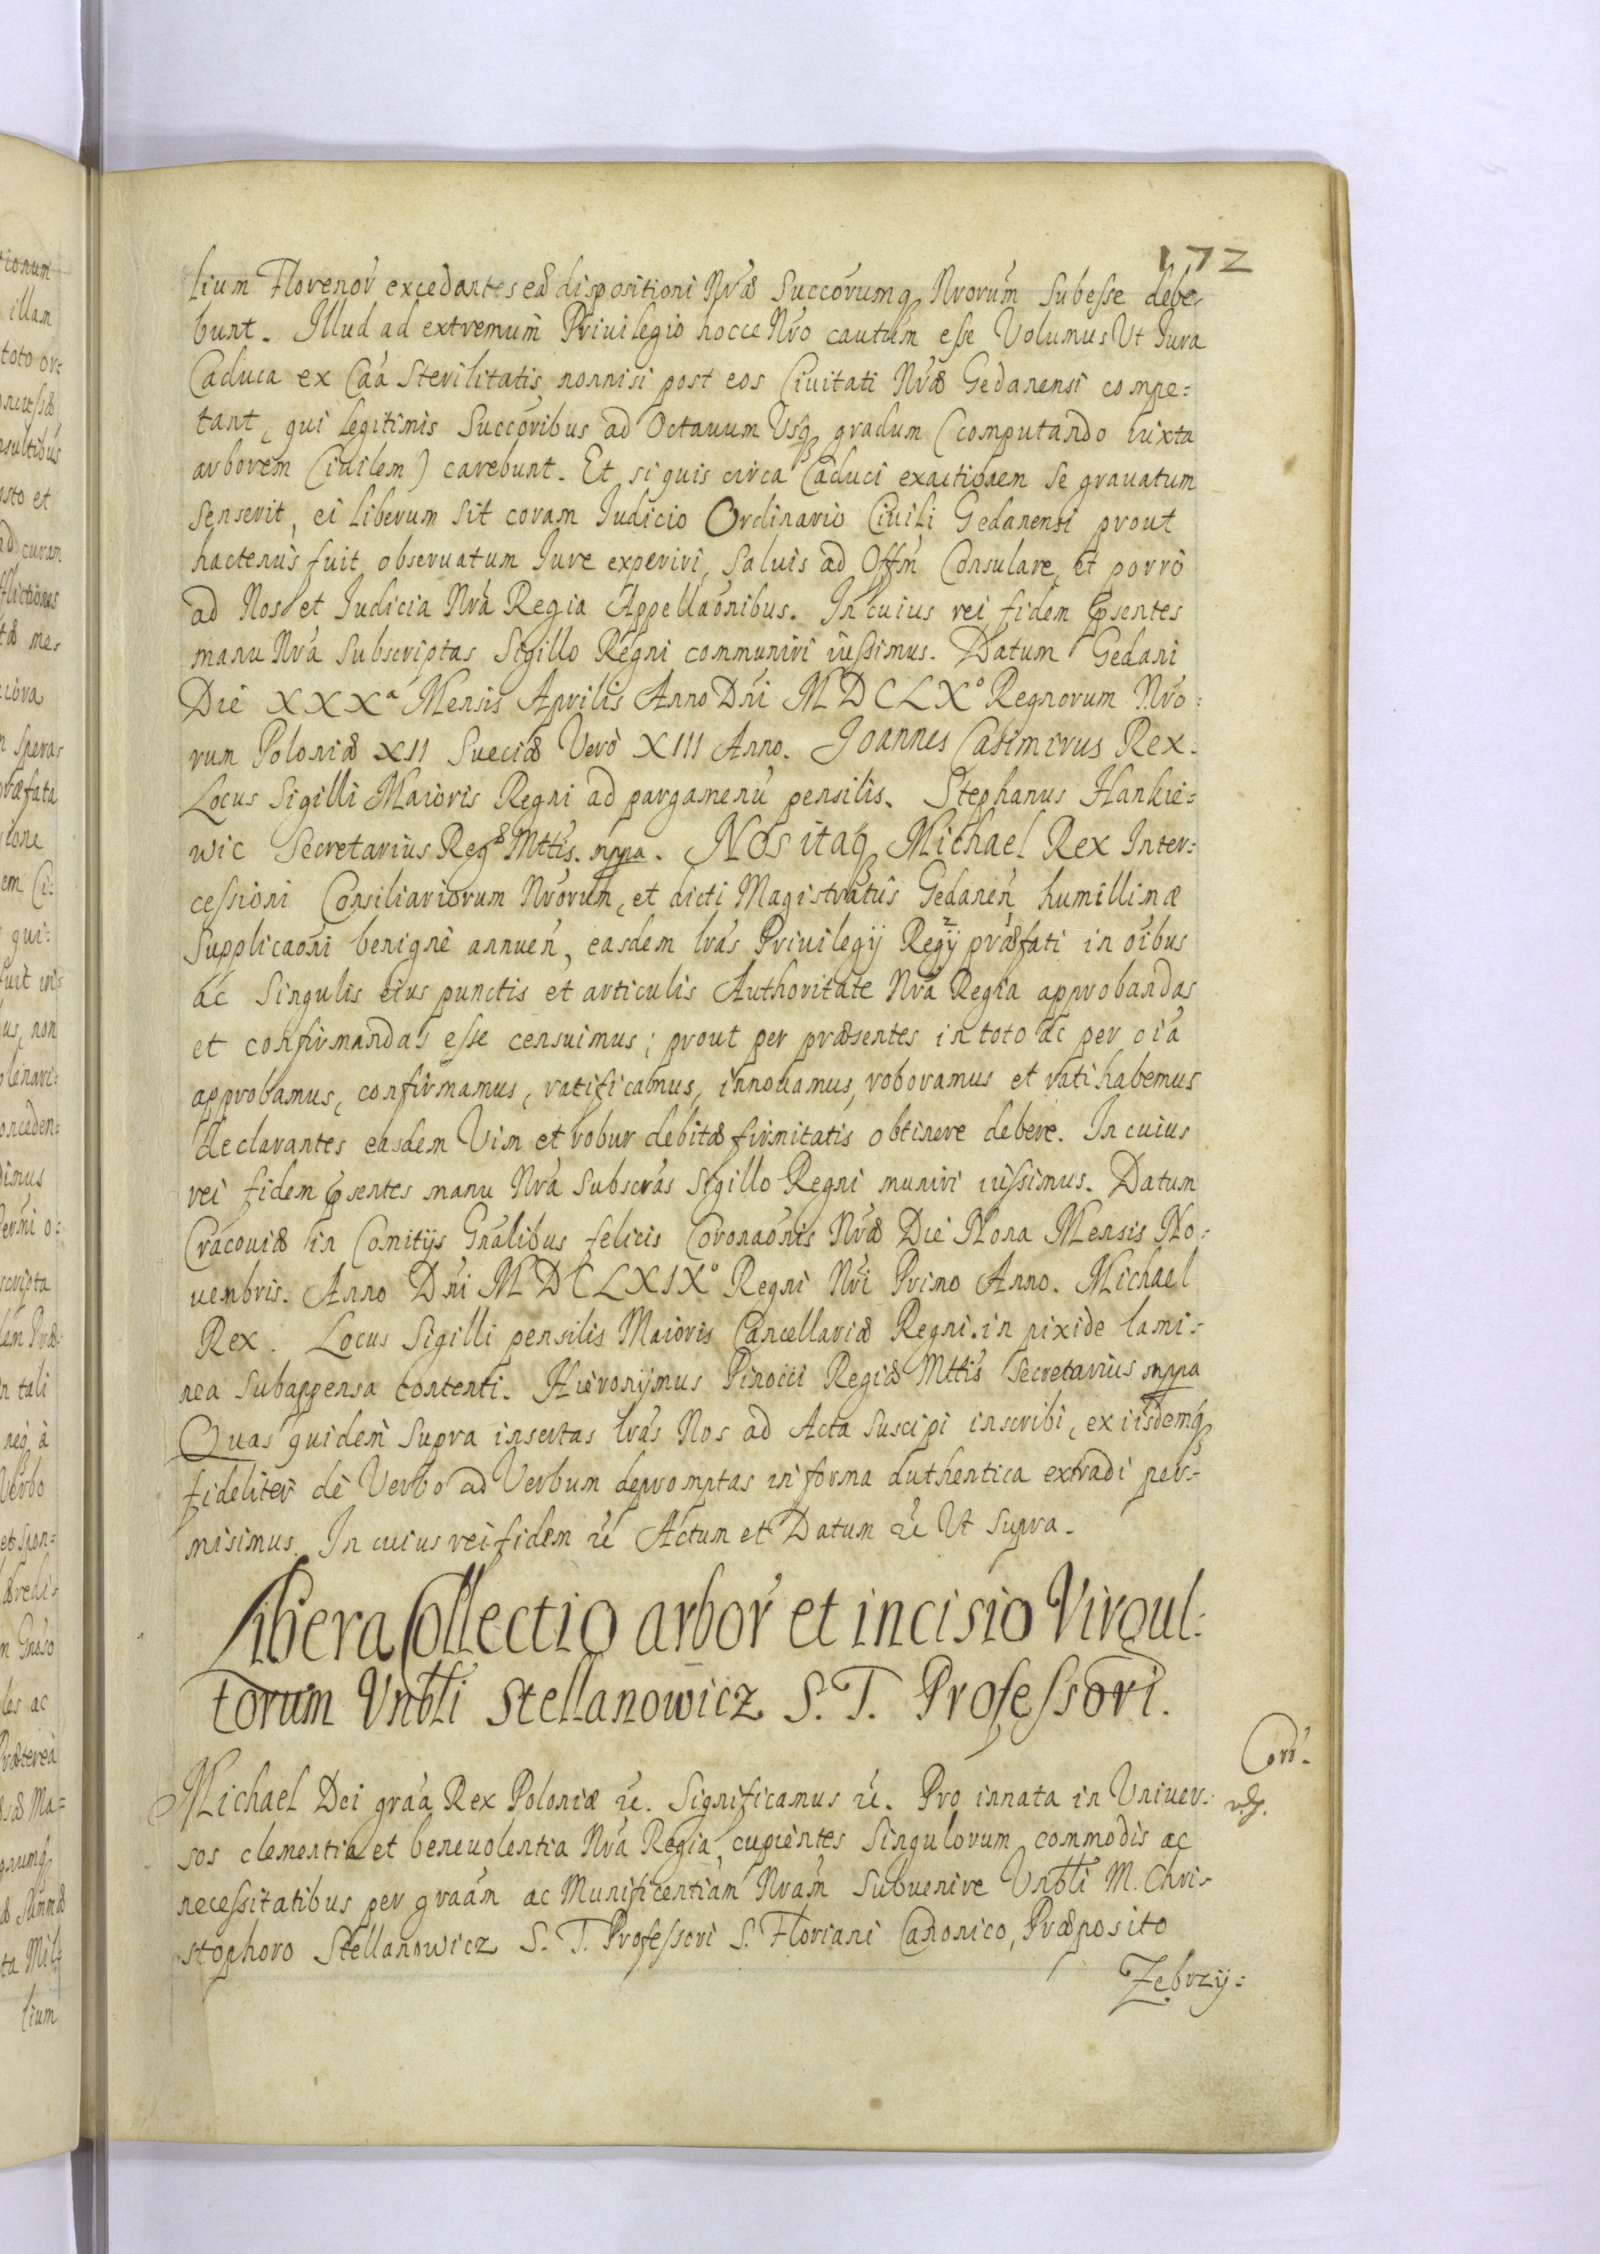 172
lium Florenor̃ excedantes eæ dispositioni Nr̃æ Succõrumq Nrorum̃ Subesse debe-
bunt. Illud ad extremum Priuilegio hocce Nr̃o cautum esse Volumus Ut Iura
Caduca ex Cãa Sterilitatis nonnisi post eos Ciuitati Nr̃æ Gedanensi compe:
tant, qui legitimis Succõribus ad Octauum Usq gradum (computando iuxta
arborem Ciuilem) carebunt. Et si quis circa Caduci exactionem Se grauatum
Senserit, ei liberum Sit coram Iudicio Ordinario Ciuili Gedanensi prout
hactenus fuit obseruatum Iure experiri, Saluis ad Offm̃ Consulare, et porrò
ad Nos et Iudicia Nr̃a Regia Appellaõnibus. In cuius rei fidem p̃sentes
manu Nr̃a Subscriptas Sigillo Regni communiri iussimus. Datum Gedani
Die XXXª Mensis Aprilis Anno Dñi MDCLXº Regnorum Nr̃o:
rum Poloniæ XII Sueciæ Verò XIII Anno. Joannes Casimirus Rex.
Locus Sigilli Maioris Regni ad pargamenũ pensilis. Stephanus Hankie:
wic Secretarius Regæ Mttis. mppa. Nos itaq Michael Rex Inter:
cessioni Consiliariorum Nr̃orum, et dicti Magistratus Gedaneñ humillimæ
Supplicaõni benignè annueñ, easdem lr̃as Priuilegij Regij præfati in oĩbus
ac Singulis eius punctis et articulis Authoritate Nr̃a Regia approbandas
et confirmandas esse censuimus; prout per præsentes in toto ac per oĩa
approbamus, confirmamus, ratificamus, innouamus, roboramus et ratihabemus
declarantes easdem Vim et robur debitæ firmitatis obtinere debere. In cuius
rei fidem p̃sentes manu Nr̃a Subscr̃as Sigillo Regni muniri iussimus. Datum
Cracouiæ in Comitijs Gñalibus felicis Coronaõnis Nr̃æ Die Nona Mensis No:
uembris. Anno Dñi MDCLXIXº Regni Nr̃i Primo Anno. Michael
Rex. Locus Sigilli pensilis Maioris Cancellariæ Regni in pixide lami:
nea Subappensa contenti. Hieronijmus Pinocci Regiæ Mttis Secretarius mppa
Quas quidem Supra insertas lr̃as Nos ad Acta Suscipi inscribi, ex iisdemq
fideliter de Verbo ad Verbum depromptas in forma authentica extradi per-
misimus. In cuius rei fidem &c Actum et Datum &c Ut Supra.
Libera Collectio arbor̃ et incisio Virgul:
torum Vnbli Stellanowicz S. T. Professori.
Michael Dei grãa Rex Poloniæ &c. Significamus &c. Pro innata in Vniuer:
sos clementia et beneuolentia Nr̃a Regia, cupientes Singulorum commodis ac
necessitatibus per grãam ac Munificentiam Nr̃am Subuenire Vnbli M. Chri-
stophoro Stellanowicz S. T. Professori S. Floriani Canonico, Præposito
Zebrzij: